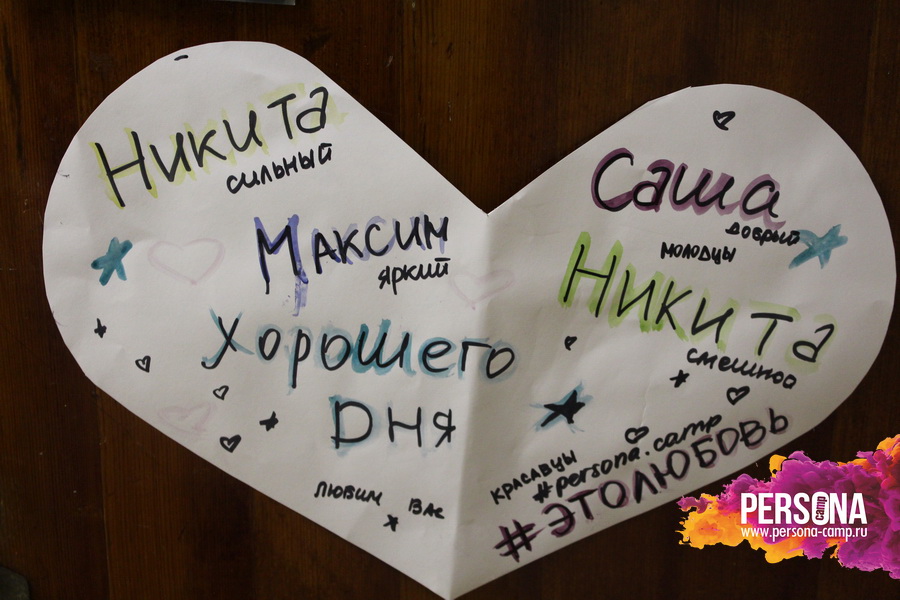 Никита
сильный
Максим
яркий
Хорошего
Дня
любим вас
Саша
добрый
молодцы
Никита
смешной
красавцы
#persona.camp
#ЭТОЛЮБОВЬ
PERSONA
camp
www.persona-camp.ru